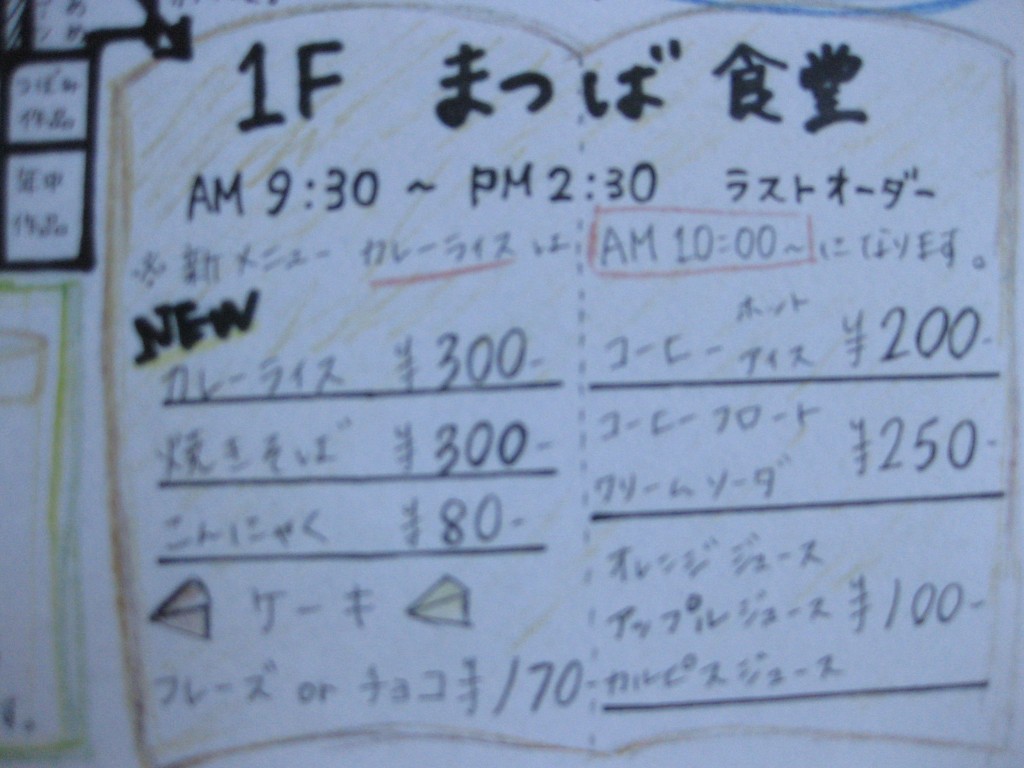 つぼみ
作品
年中
作品
1F まつば食堂
AM 9:30 ~ PM 2:30 ラストオーダー
※新メニュー カレーライスは AM 10:00~ になります。
NEW
カレーライス ¥300-
焼きそば ¥300-
こんにゃく ¥80-
ケーキ
フレーズ or チョコ ¥170-
ホット
コーヒー アイス ¥200-
コーヒーフロート
クリームソーダ ¥250-
オレンジジュース
アップルジュース ¥100-
カルピスジュース